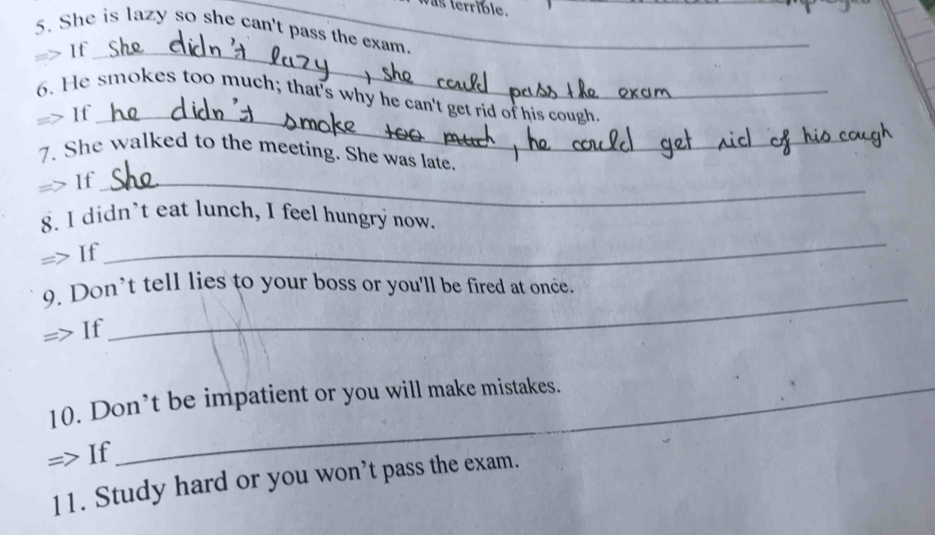 was terrible.
5. She is lazy so she can't pass the exam.
=> If she didn't lazy, she could pass the exam
6. He smokes too much; that's why he can't get rid of his cough.
=> If he didn't smoke too much, he could get rid of his cough
7. She walked to the meeting. She was late.
=> If She
8. I didn't eat lunch, I feel hungry now.
=> If
9. Don't tell lies to your boss or you'll be fired at once.
=> If
10. Don't be impatient or you will make mistakes.
=> If
11. Study hard or you won't pass the exam.